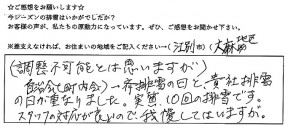 ☆ご感想をお願いします☆
今シーズンの排雪はいかがでしたか？
お客様の声が、私たちの原動力になっています。ぜひ、ご感想をお聞かせ下さい。
※差支えなければ、お住まいの地域をご記入ください→（江別市）（大麻 地区）
（調整不可能とは思いますが）
自治会（町内会）→市排雪の日と、貴社排雪
の日が重なりました。実質、10回の排雪です。
スタッフの対応が良いので、我慢してはいますか。